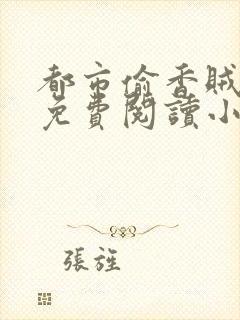 都市偷香賊
免費閱讀小
張旌